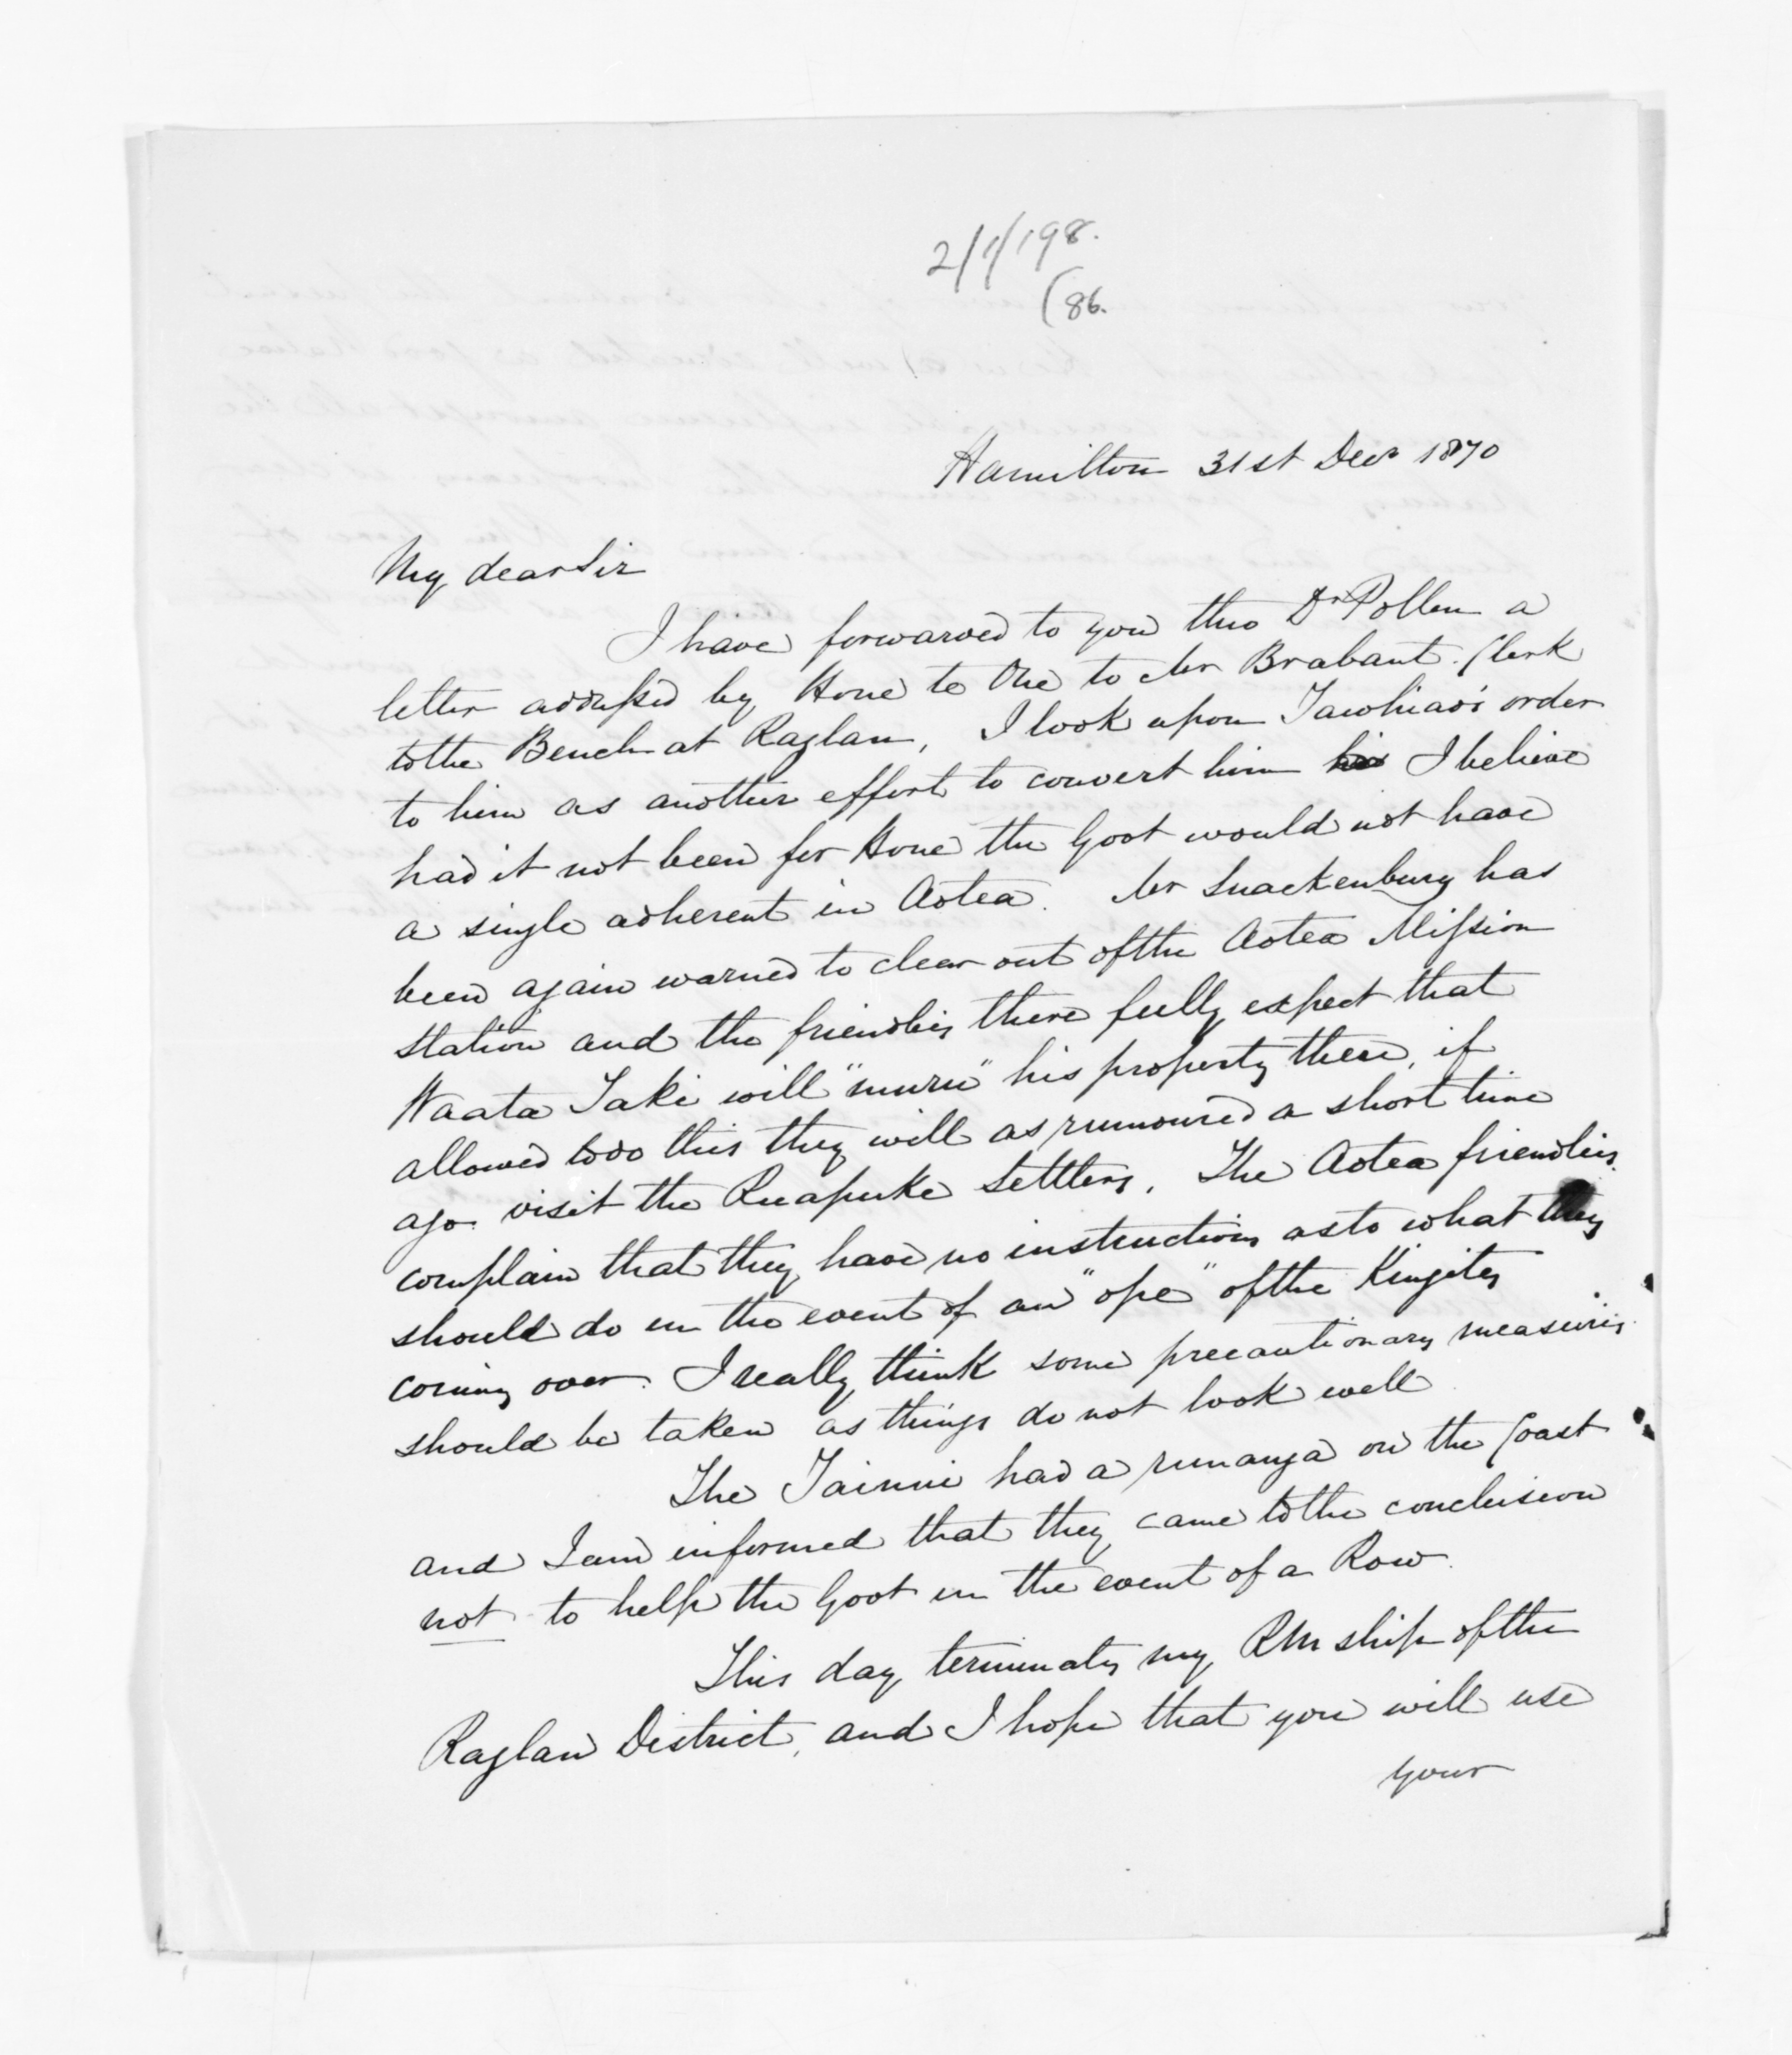 2/1/198.
(86.
Hamilton 31st Decr 1870
My dear Sir
I have forwarded to you thro Dr Pollen a
letter addressed by Hone te One to Mr Brabant. Clerk
to the Bench at Raglan, I look upon Tawhiao's order
to him as another effort to convert him his I believe
had it not been for Hone the Govt would not have
a single adherent in Aotea. Mr Snackenburg has
been again warned to clear out of the Aotea Mission
station and the friendlies there fully expect that
Waata Taki will "muru" his property there, if
allowed to do this they will as rumoured a short time
ago visit the Ruapuke Settlers. The Aotea friendlies
complain that they have no instructions as to what they
should do in the event of an "ope" of the Kingites
coming over. I really think some precautionary measures
should be taken as things do not look well
The Tainui had a runanga on the Coast
and I am informed that they came to the conclusion
not to help the Govt in the event of a Row.
This day terminates my RM ship of the
Raglan District, and I hope that you will use
your